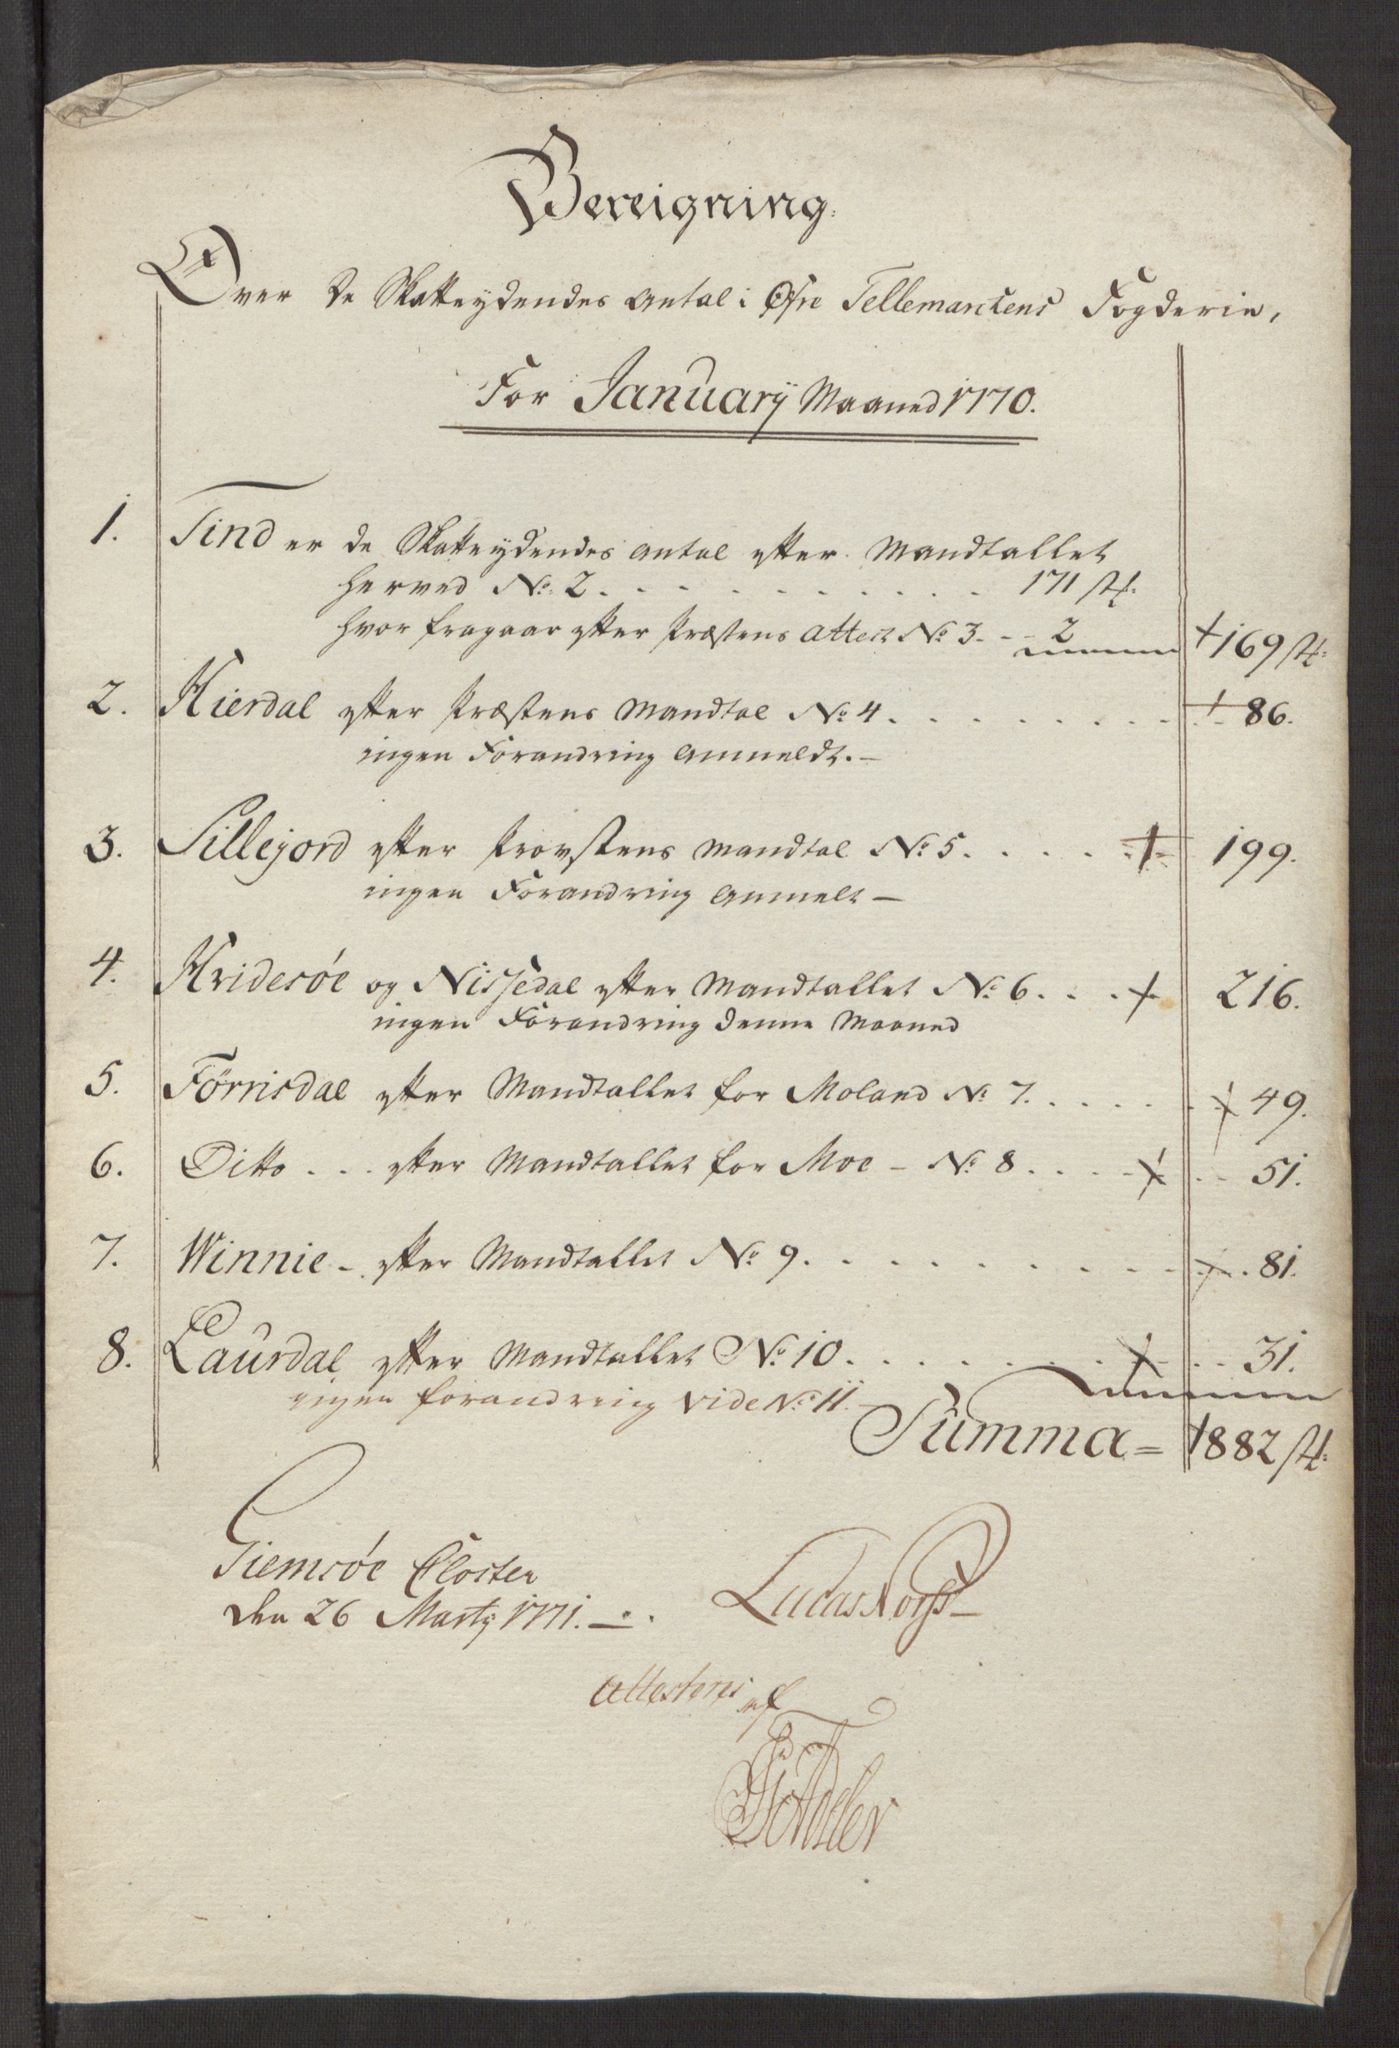 Bereigning
Over de Skatteydendes Antal i Øfre Tellemarckens Fogderie,
For Januarÿ Maaned 1770.
1. Tind er de Skatteydendes antal efter Mandtallet
herved No. 2 . . . . . . . . . . 171 st.
hvor fragaar efter Præstens Attest No. 3. - - 2 + 169 st.
2. Hierdal efter Præstens Mandtal No. 4 . . . . . . . . . + 86.
ingen Forandring Anmeldt. —
3. Sillejord efter Provstens Mandtal No. 5 . . . . . + 199.
ingen Forandring Anmelt —
4. Hvidesøe og Nissedal efter Mandtallet No. 6 . . . + 216.
ingen Forandring denne Maaned
5. Førrisdal efter Mandtallet for Moland No. 7. . . . . . + 49.
6. Ditto . . . efter Mandtallet for Moe - No. 8 . . . . + . . 51.
7. Winnie - efter Mandtallet No. 9 . . . . . . . . . + . 81.
8. Laurdal efter Mandtallet No. 10 . . . . . . . + . . 31.
ingen forandring vide No. 11. —
Summa = 882 st.
Giemsøe Closter
den 26 Martÿ 1771. —
Lucas
Attesteres af